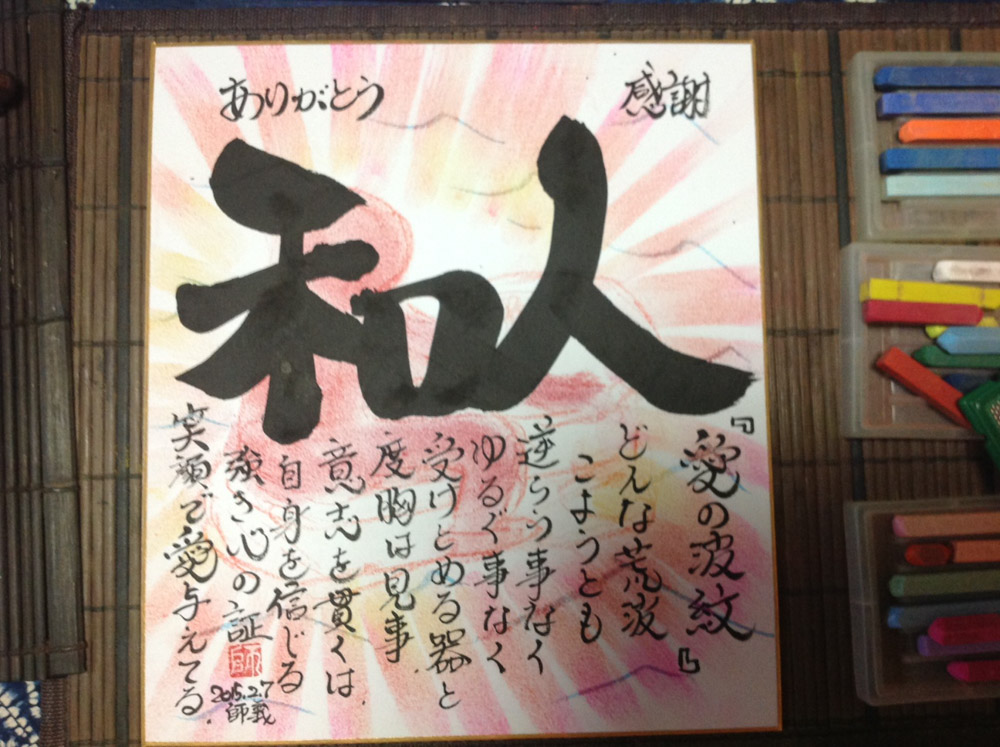 ありがとう
感謝
和人
『愛の波紋』
どんな荒波
こようとも
逆らう事なく
ゆるぐ事なく
受けとめる器と
度胸は見事.
意志を貫くは
自身を信じる
強さ心の証
笑顔で愛与えてる.
2015.2.7
師義